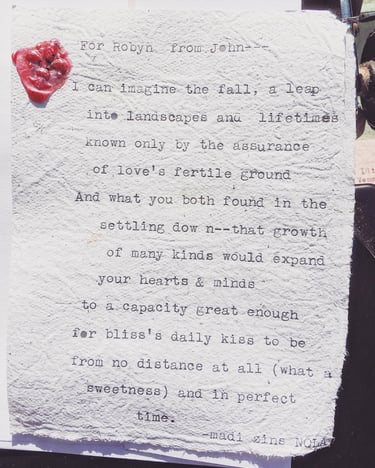 For Robyn from John---
I can imagine the fall, a leap
into landscapes and lifetimes
known only by the assurance
of love's fertile ground
And what you both found in the
settling dow n--that growth
of many kinds would expand
your hearts & minds
to a capacity great enough
for bliss's daily kiss to be
from no distance at all (what a
sweetness) and in perfect
time.
-madi zins NOLA